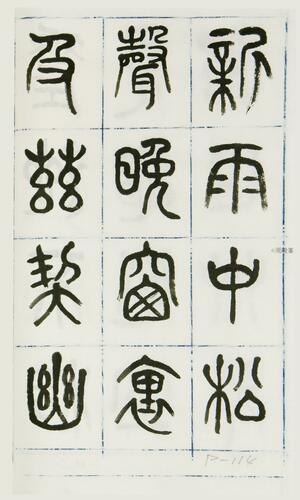 新雨中松
聲晚窗寓
及茲契幽
P-114